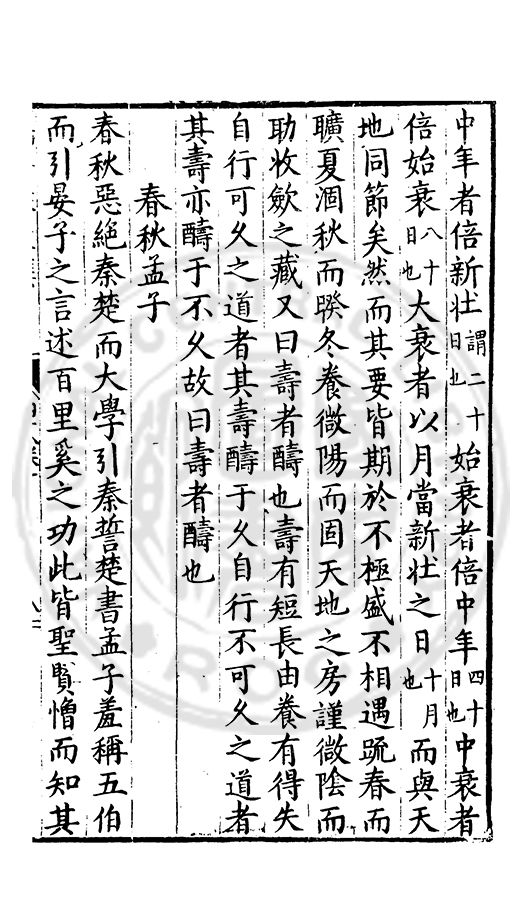 中年者倍新壯謂二十日也始衰者倍中年四十日也中衰者
倍始衰八十日也大衰者以月當新壯之日十月也而與天
地同節矣然而其要皆期於不極盛不相遇䟽春而
曠夏涸秋而暌冬養微陽而固天地之房謹微陰而
助收斂之藏又曰壽者醻也壽有短長由養有得失
自行可久之道者其壽醻于久自行不可久之道者
其壽亦醻于不久故曰壽者醻也
春秋孟子
春秋惡絕秦楚而大學引秦誓楚書孟子羞稱五伯
而引晏子之言述百里奚之功此皆聖賢憎而知其